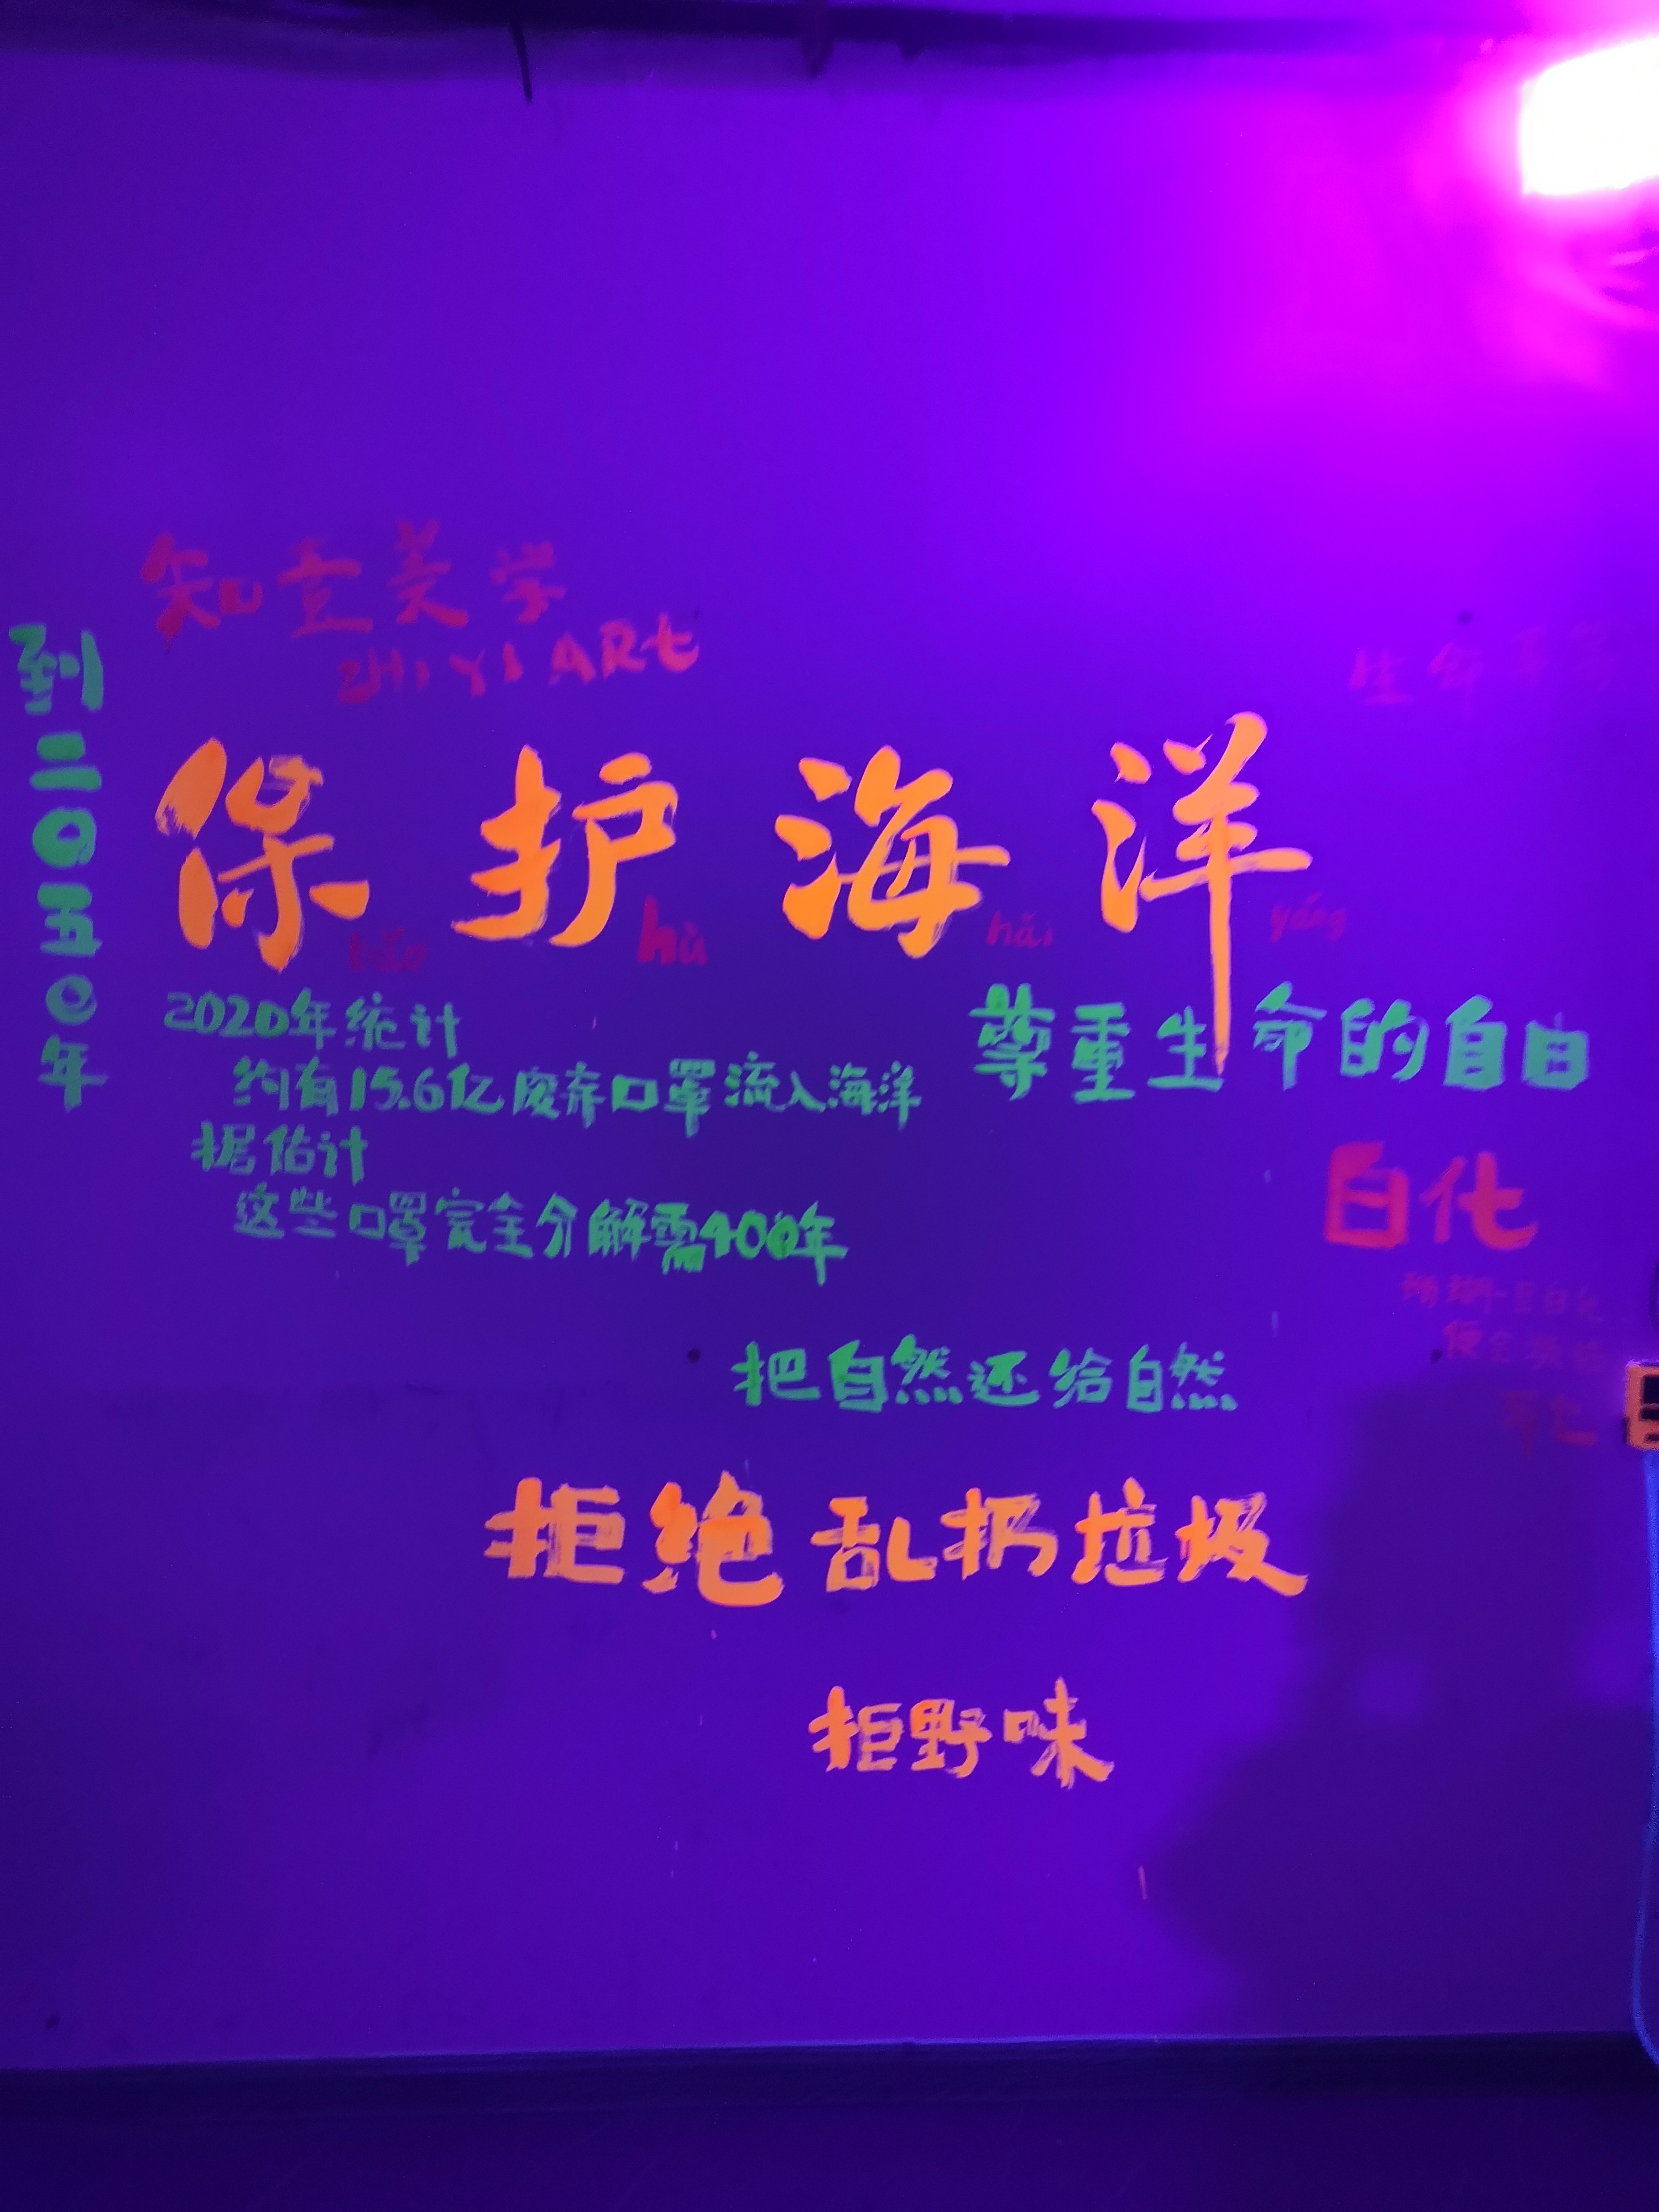 到二〇五〇年
知壹美学
ZHIYI ARt
保护海洋
bǎo hù hǎi yáng
2020年统计
约有15.6亿废弃口罩流入海洋
据估计
这些口罩完全分解需400年
尊重生命的自由
白化
珊瑚一旦白化
把自然还给自然
拒绝乱扔垃圾
拒野味